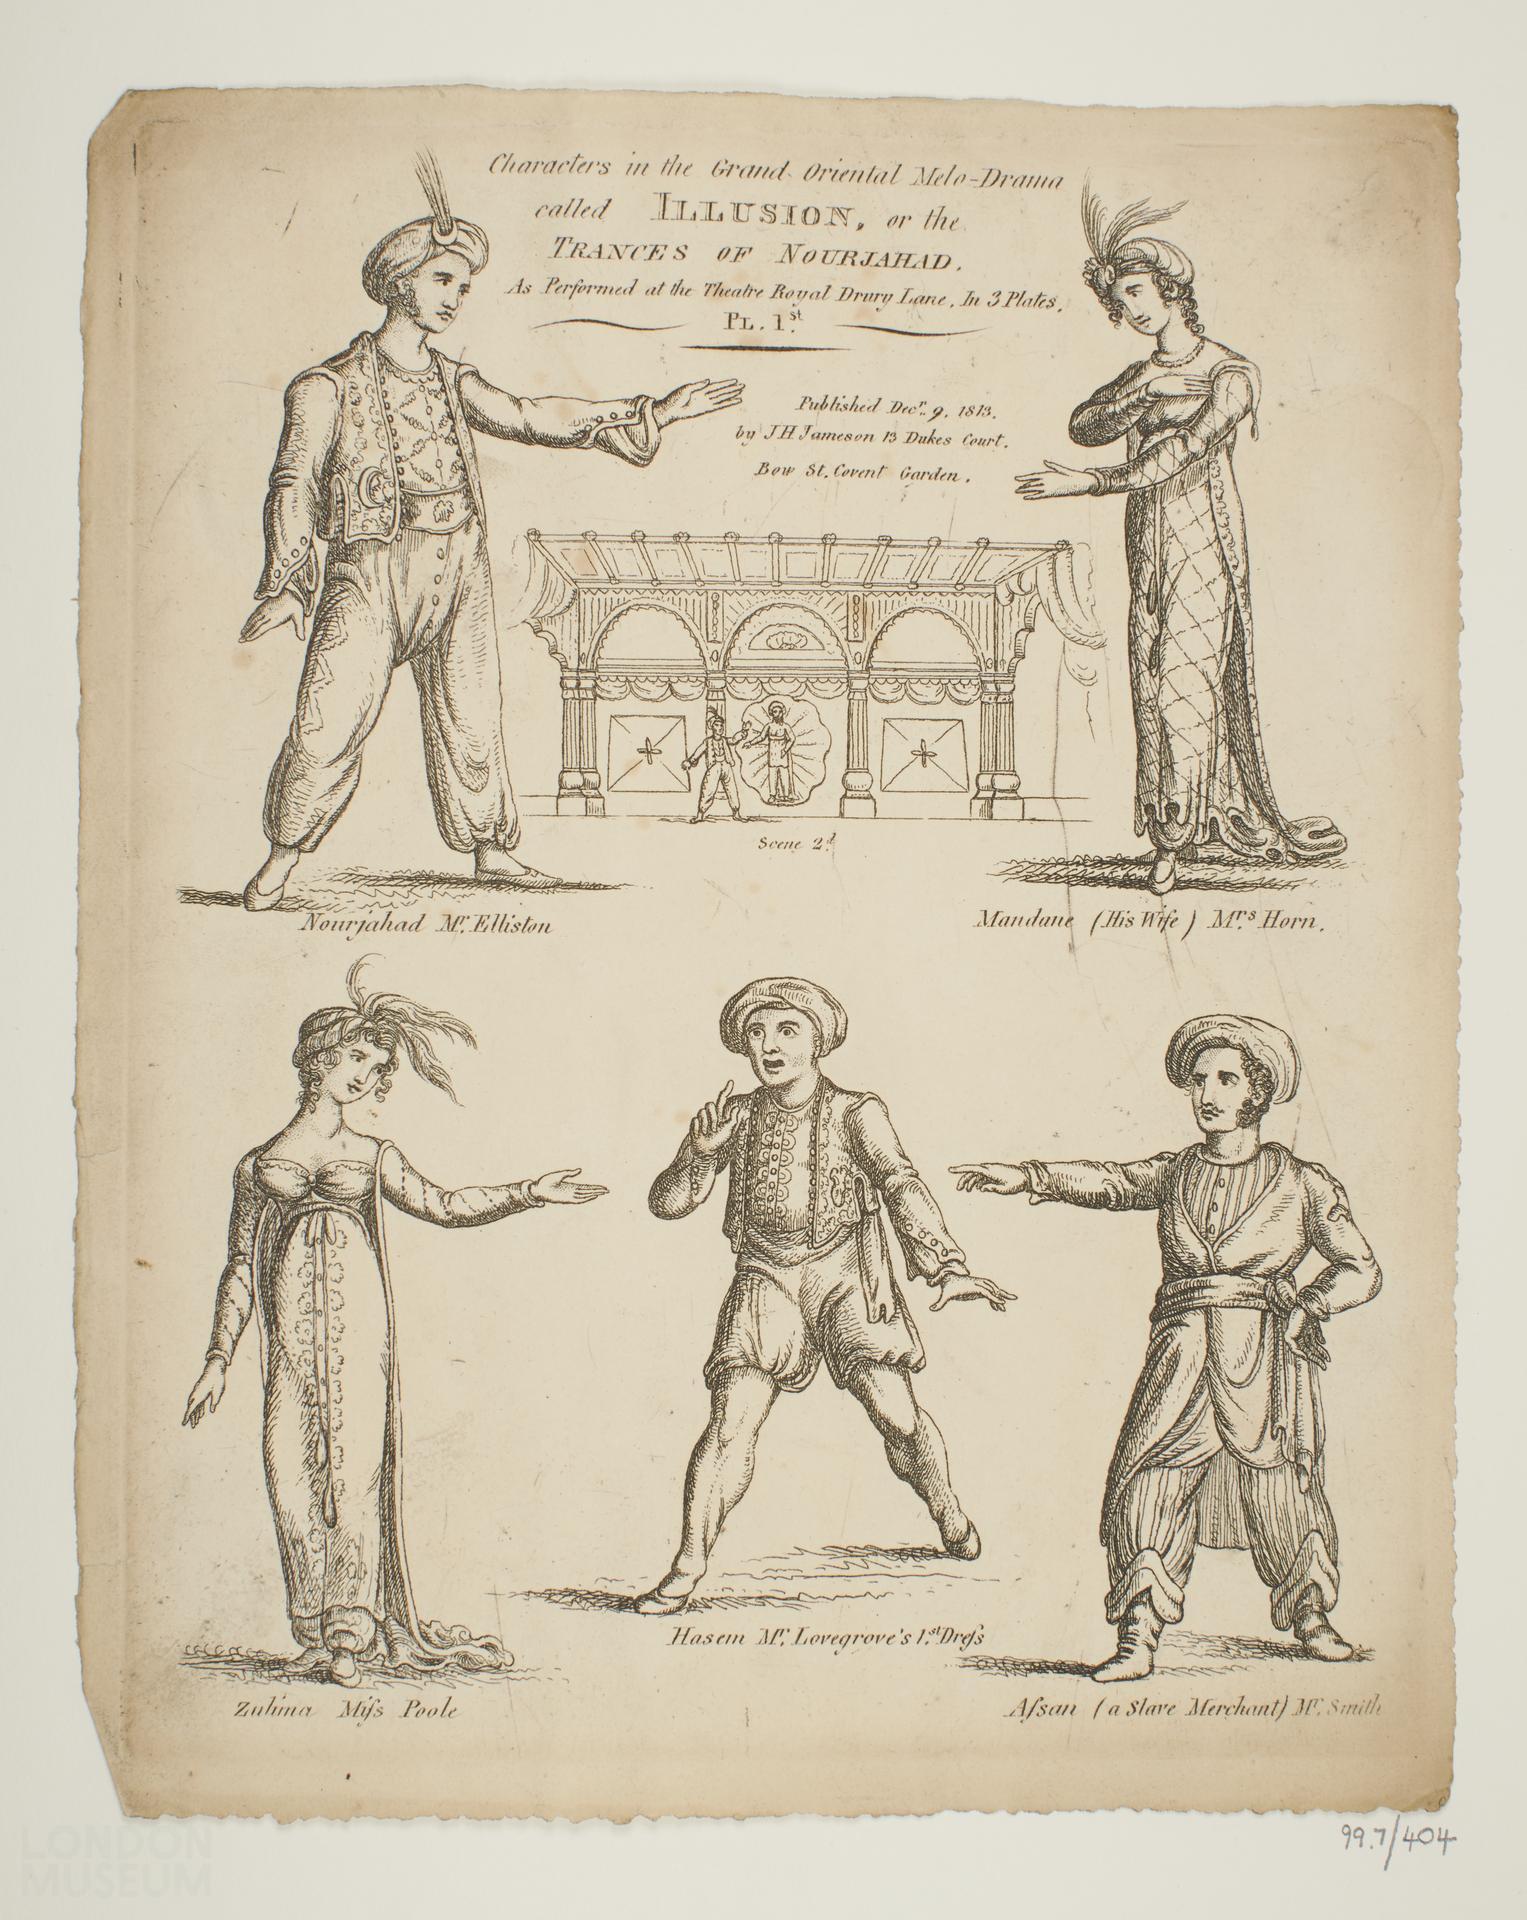 Characters in the Grand Oriental Melo-Drama
called ILLUSION, or the
TRANCES OF NOURJAHAD.
As Performed at the Theatre Royal Drury Lane. In 3 Plates.
PL. 1st.
Published Decr. 9. 1813.
by JH Jameson 13 Dukes Court.
Bow St. Covent Garden.
Scene 2d
Nourjahad Mr. Elliston
Mandane (His Wife) Mrs. Horn.
Hasem Mr. Lovegrove's 1st. Dreſs
Zulima Miſs Poole
Aſsan (a Slave Merchant) Mr. Smith
99.7/404
LONDON
MUSEUM